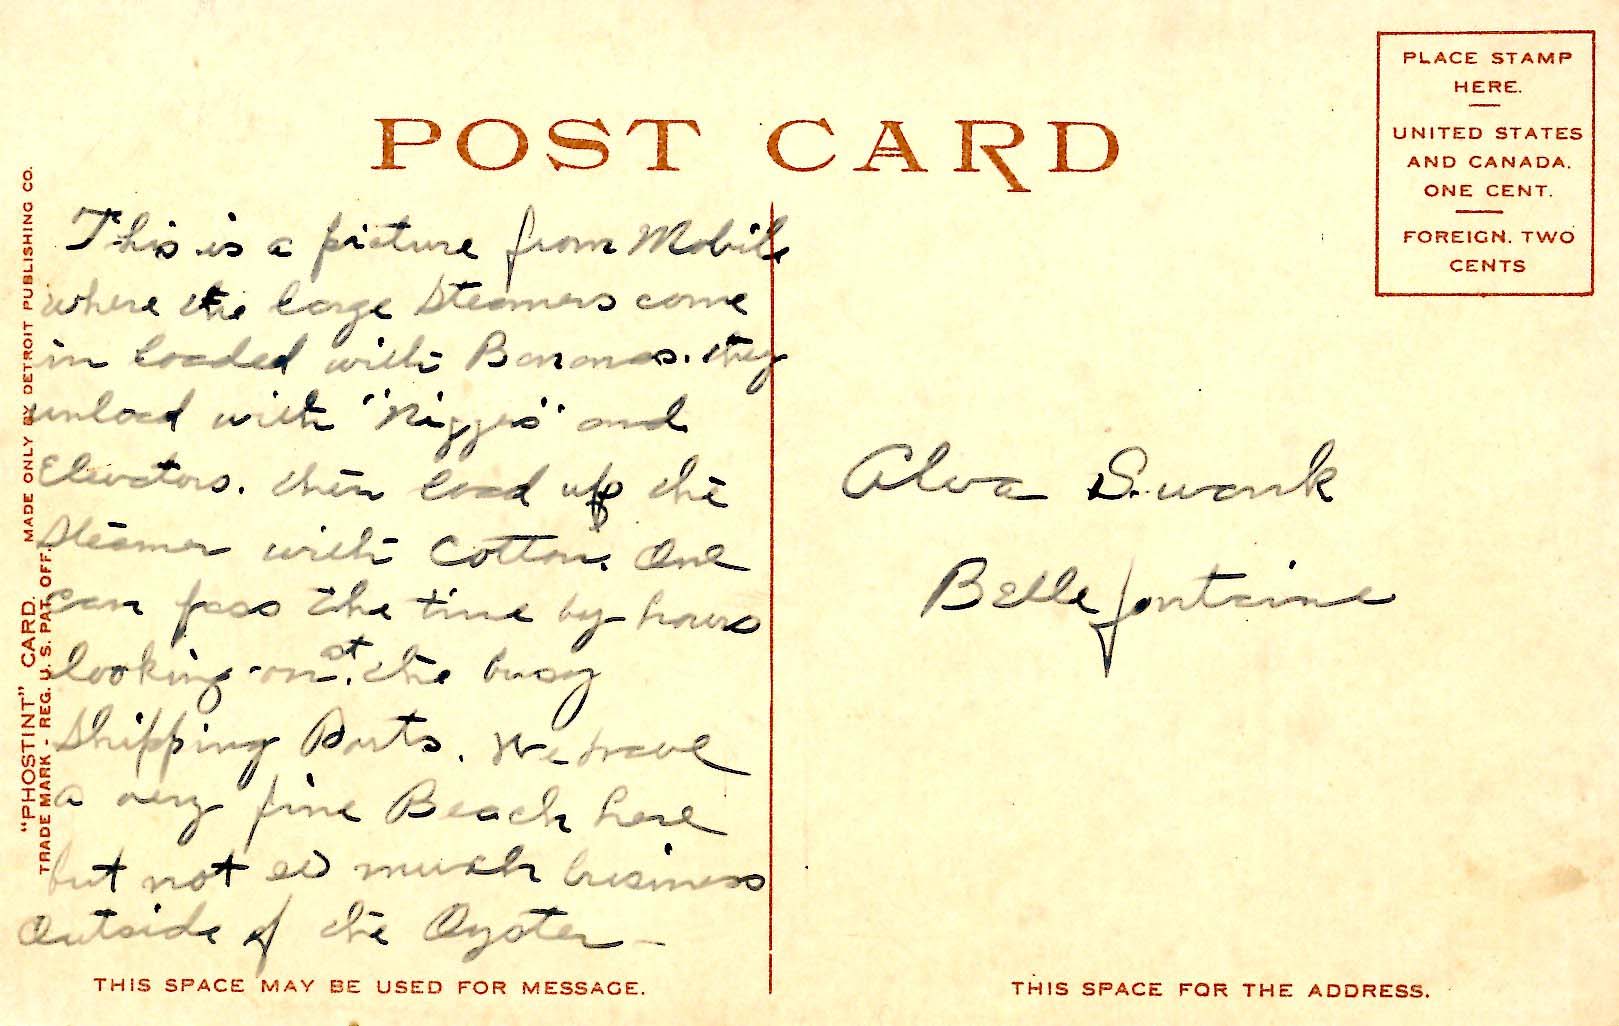 POST CARD
PLACE STAMP
HERE.
UNITED STATES
AND CANADA.
ONE CENT.
FOREIGN. TWO
CENTS
"PHOSTINT" CARD. MADE ONLY BY DETROIT PUBLISHING CO.
TRADE MARK - REG. U. S. PAT. OFF.
This is a picture from Mobile
where the large Steamers come
in loaded with Bananas. they
unload with "Niggers" and
Elevators. then load up the
Steamer with Cotton. One
can pass the time by hours
looking on at. the busy
Shipping Ports. We have
a very fine Beach here
but not so much business
Outside of the Oyster -
Alva Swank
Bellefontaine
THIS SPACE MAY BE USED FOR MESSAGE.
THIS SPACE FOR THE ADDRESS.